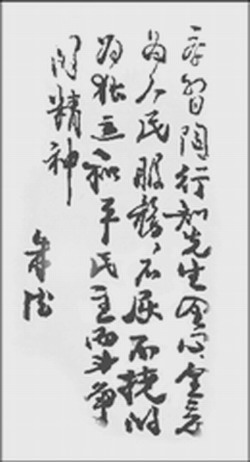 学习陶行知先生全心全意
为人民服务,不屈不挠的
为独立和平民主而斗争
的精神
朱德